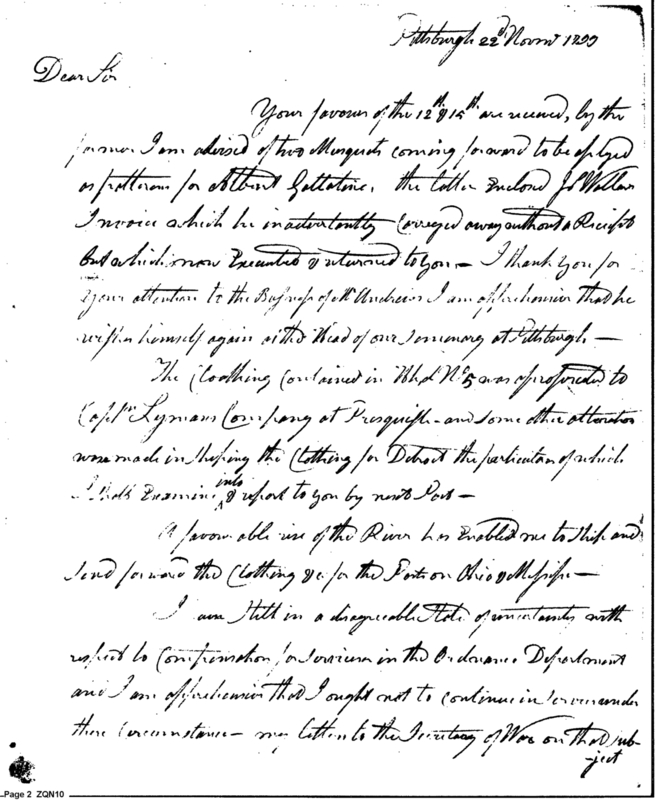 Pittsburgh 22d Novmr 1799
Dear Sir
Your favours of the 12th & 15th are received, by the
former I am advised of two Musquets coming forward to be
as patterns for Albert Gallatine. the latter Enclosed
Invoice which he inadvertantly carryed away without a Reciept
but which now Executed & returned to you — I thank you for
your attention to the Business of Mr Andrews I am apprehensive that he
wishes himself again at the Head of our Seminary at Pittsburgh —
The Cloathing Contained in Hhd No 5 was appropreated to
Captn Lymans Company at Presquisle - and some other alteration
were made in shiping the Clothing for Detroit the particulars of which
I shall Examine into & report to you by next Post —
A favourable rise of the River has Enabled me to ship and
send forward the Clothing &c for the Posts on Ohio & Missisipi —
I am still in a disagreeable state of uncertainty with
respect to Compensation for services in the Ordnance Department
and I am apprehensive that I ought not to continue in service under
these Circumstances — my letter to the Secretary of War on that sub-
ject
Page 2 ZQN10